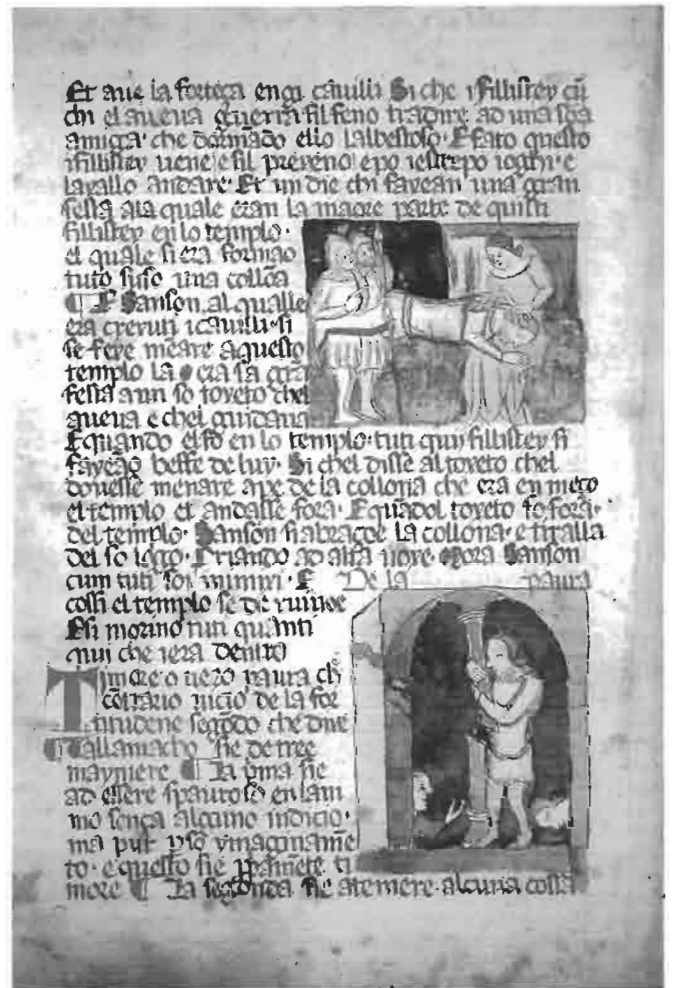 Et ave la forteça en gi cavilli Si che i fillistey cū
chi el aveva guerra sil feno tradire ad una soa
amiga che dormādo ello la
E fato questo
i fillistey vene e sil preveno e po
ochi e
andare Et un die chi favean una gran
festa ala quale eran la maore parte de quisti
fillistey en lo templo
el quale si era formao
tuto suso una collōa
¶ E Sanson al qualle
era creruti i cavilli si
se fere menare a questo
templo la o era sta grā
festa a un so toveto chel
aveva e chel guidava
E quando el fo en lo templo tuti qui fillistey si
favēao beffe de luy Si chel disse al toveto chel
dovesse menare ape de la collona che era en meço
el templo et andasse fora E quādol toveto fo fora
del templo Sanson si abraçoe la collona e tiralla
del so logo
ad alta voxe mora Sanson
cum tuti soi inimixi E De la paura
cossi el templo se de
E si morino tuti quanti
qui che iera dentro
Timore o vero paura chē
cōtrario vicio de la for
titudene segōdo che dixe
¶ Tallamacho sie de tree
mayniere ¶ La p̄ma sie
ad essere spauroso en lani
mo sença alcuno indicio
ma pur p so ymaginamē
to e questo sie p̄pamēte ti
more ¶ La segonda sie a temere alcuna cossa